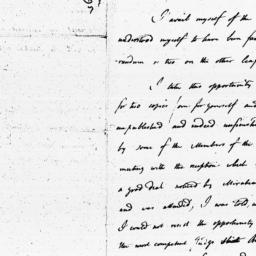 I avail myself of the
understood myself to have been
random or two on the other leaf
I take this opportunity
for two copies, one for yourself and
unpublished and indeed unfinished
by some of the Members of the
meeting with the reception which
a good deal noticed by Mirabeau
and was attended, I was told,
I could not resist the opportunity
the most competent Judge